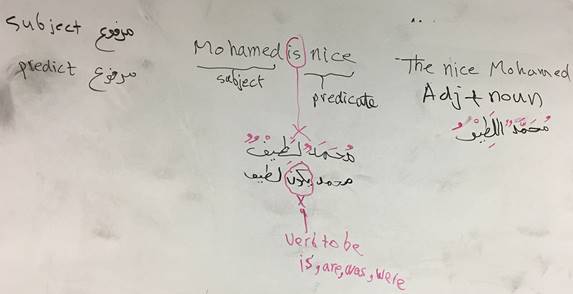 subject مرفوع
predict مرفوع
Mohamed is nice
subject
predicate
مُحَمَدٌ لَطِيْفٌ
محمد يكون لطيف
verb to be
is, are, was, were
The nice Mohamed
Adj + noun
مُحَمَّدٌ اللَطِيْفُ